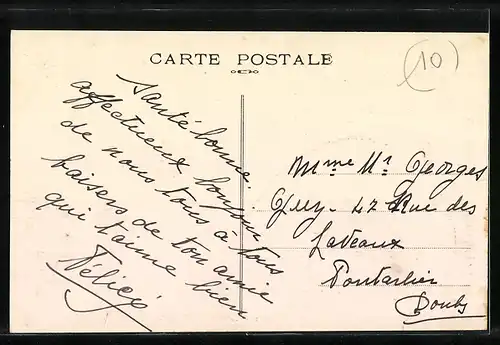 CARTE POSTALE
10
Santé bonne.
affectueux bonjour
de nous tous à tous
baisers de ton amie
qui t'aime bien
Mme Mr Georges
Guy. 47 Rue des
Laveaux
Pontarlier
Doubs